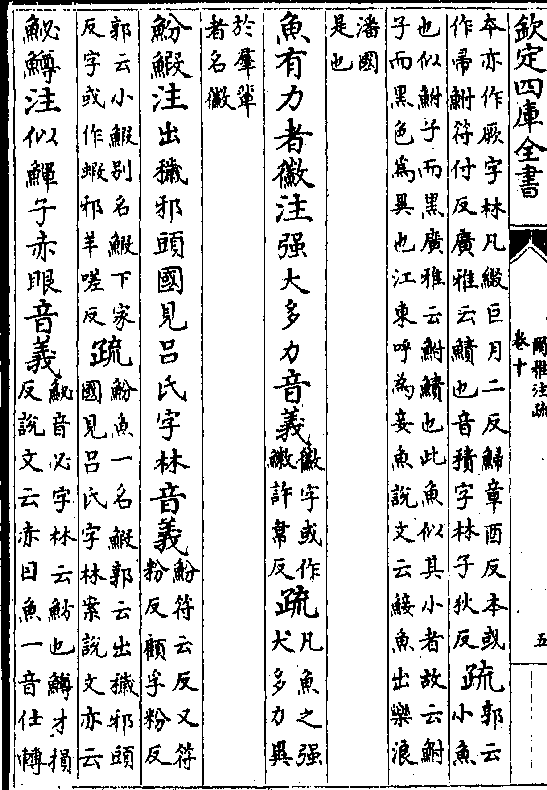 欽定四庫全書
爾雅注疏
卷十
五
夲亦作厥字林凡綴巨月二反鯞章酉反本或
作帚鮒符付反廣雅云鰿也音積字林子狄反
疏
郭云
小魚
也似鮒子而黑廣雅云鮒鰿也此魚似其小者故云鮒
子而黑色爲異也江東呼為妾魚說文云鯜魚出樂浪
潘國
是也
魚有力者徽注强大多力音義
徽字或作
䲪許韋反
疏
凡魚之强
大多力異
於羣輩
者名徽
魵鰕注出穢邪頭國見呂氏字林音義
魵符云反又符
粉反顧孚粉反
郭云小鰕别名鰕下家
反字或作蝦邪羊嗟反
疏
魵魚一名鰕郭云出穢邪頭
國見呂氏字林案說文亦云
鮅鱒注似鯶子赤眼音義
鮅音必字林云魴也鱒才損
反說文云赤目魚一音仕轉